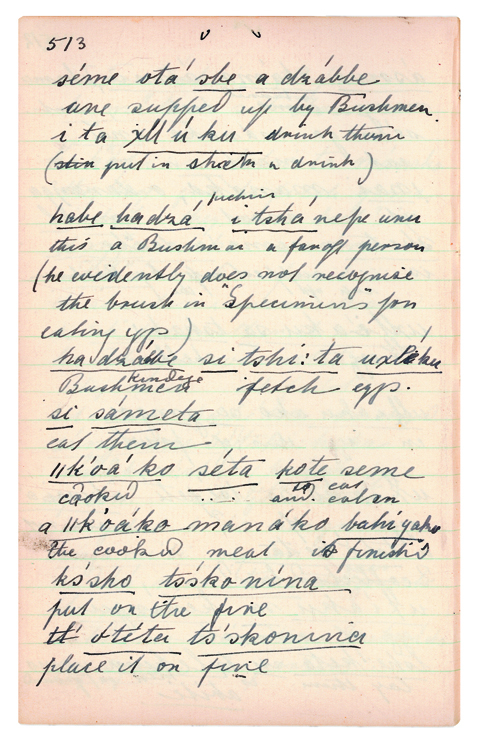 513
séme otá sbe a dzábbe
are supped up by Bushmen
i ta ú ku drink them
(stir put in a drink)
habe hadzá i tshá nepe unu
this a Bushman a far off person
(he evidently does not recognise
the brush in "Specimens" for
eating eggs)
hadzábe si tshi: ta
Bushmen kindege fetch eggs.
si sámeta
eat them
ǁk'óá'ko séta kote seme
cooked .... to eat and eaten
a ǁk'óáko manáko bahiyako
the cooked meat is finished
kó'sho ts'skonína
put on the fire
tl' otéta ts'skonina
place it on fire